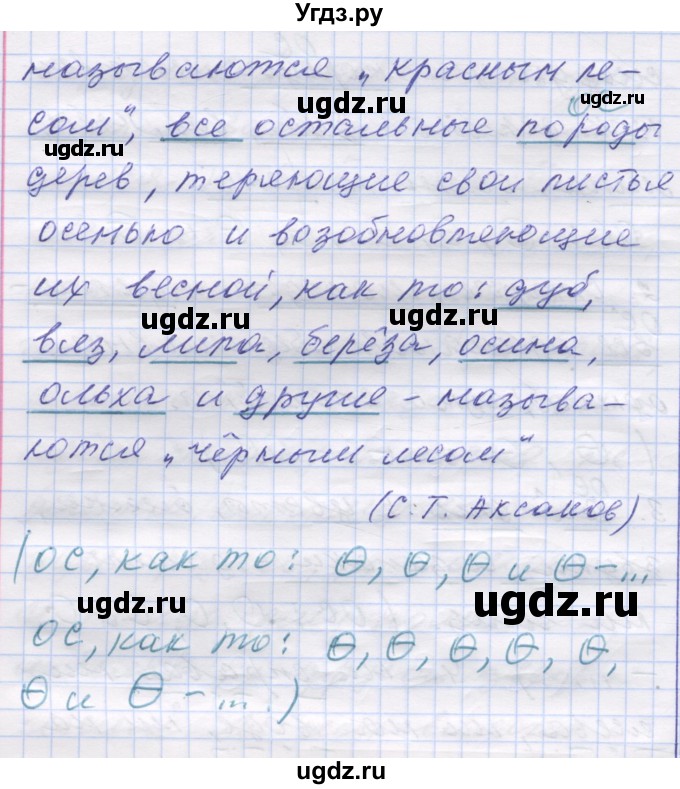 Угдз.ру
называются „красным ле-
ugdz.ru
ugdz.ru
ос
сом“, все остальные породы
ugdz.ru
дерев, теряющие свои листья
осенью и возобновляющие
ugdz.ru
их весной, как то: дуб,
ugdz.ru
ugdz.ru
вяз, липа, берёза, осина,
ольха и другие – называ-
ugdz.ru
ются „чёрным лесом“
(С. Т. Аксаков)
(ОС, как то: О, О, О и О – ...
ugdz.ru
ugdz.ru
ОС, как то: О, О, О, О, О,
О и О – ... .)
ugdz.ru
ugdz.ru